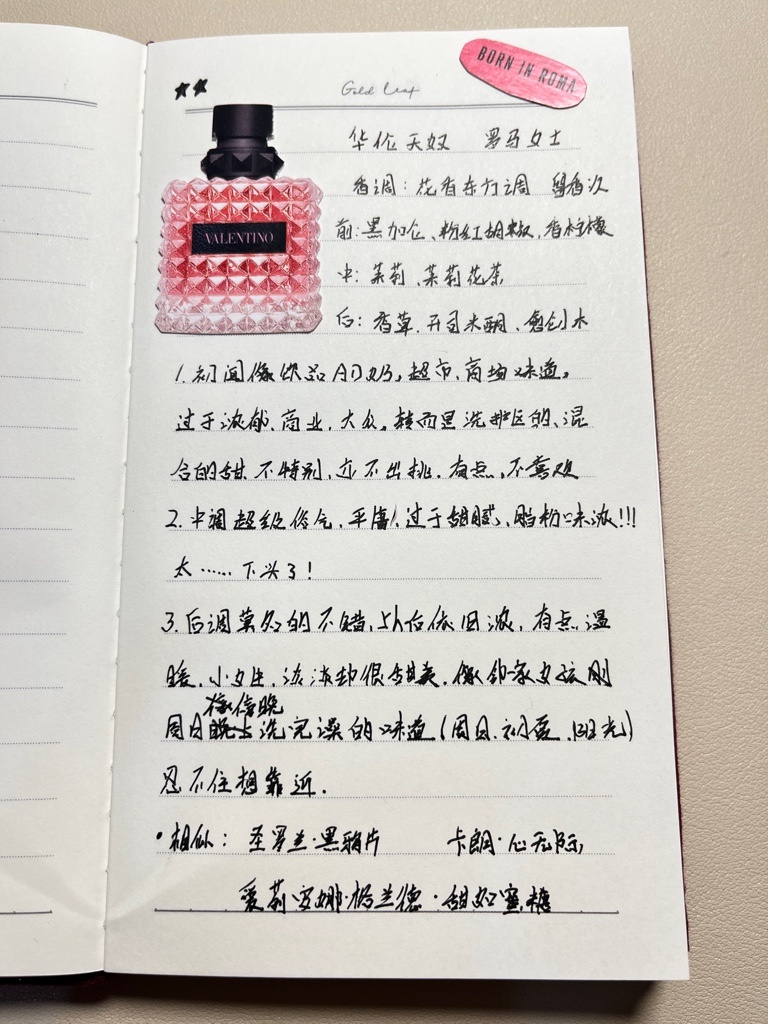 BORN IN ROMA
Gold Leaf
华伦天奴 罗马女士
VALENTINO
香调：花香东方调 留香次
前：黑加仑、粉红胡椒、香柠檬
中：茉莉、茉莉花茶
后：香草、开司米酮、愈创木
1.初闻像饮品AD奶，超市、商场味道。
过于浓郁、商业、大众，转而是洗护区的、混
合的甜 不特别，亦不出挑，有点，不喜欢
2.中调超级俗气，平庸！过于甜腻、脂粉味浓!!!
太……下头了！
3.后调莫名的不错，从后依旧浓，有点温
暖，小女生，淡淡却很甜美，像邻家女孩刚
周日傍晚洗完澡的味道（周日、初夏、阳光）
忍不住想靠近.
·相似：圣罗兰·黑鸦片 卡朗·心无际
爱莉安娜·格兰德·甜如蜜糖